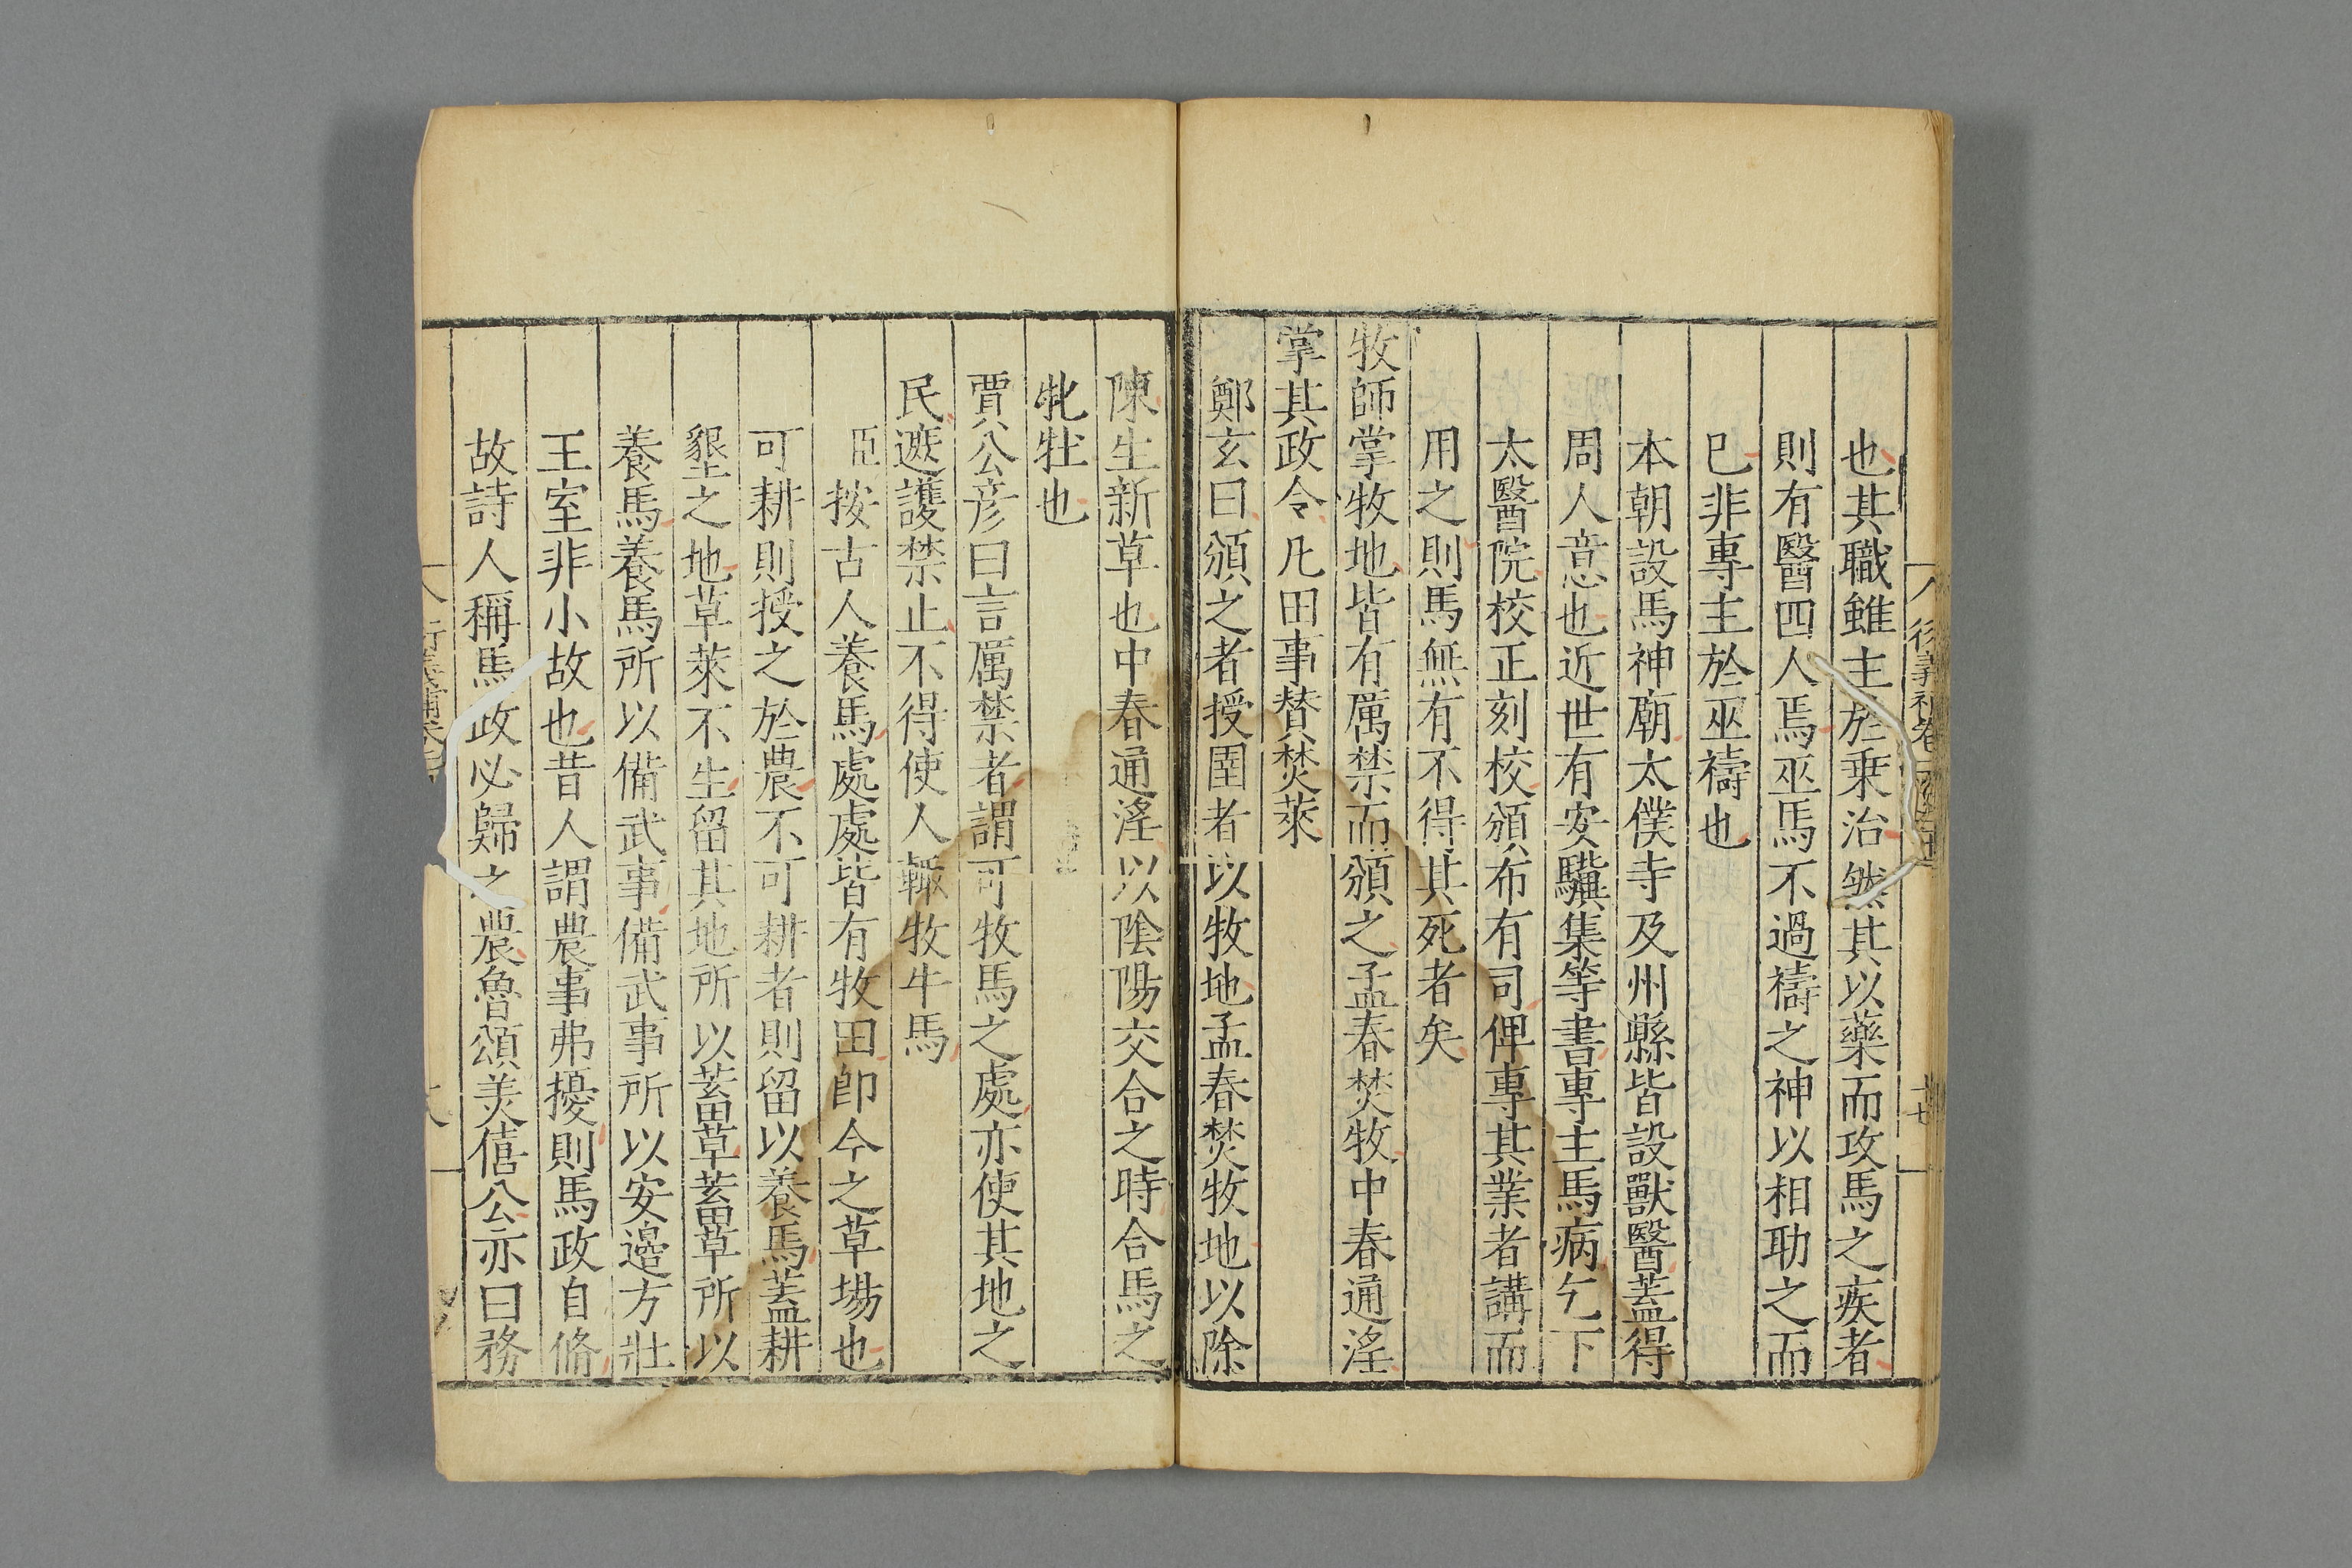 也其職雖主於乗治然其以藥而攻馬之疾者
則有醫四人焉巫馬不過禱之神以相助之而
巳非專主於巫禱也
本朝設馬神廟太僕寺及州縣皆設獸醫蓋得
周人意也近世有安驥集等書專主馬病乞下
太醫院校正刻校頒布有司俾專其業者講而
用之則馬無有不得其死者矣
牧師掌牧地皆有厲禁而頒之孟春焚牧中春通淫
掌其政令凡田事賛焚萊
鄭玄曰頒之者授圉者以牧地孟春焚牧地以除
陳生新草也中春通淫以陰陽交合之時合馬之
牝牡也
賈公彦曰言厲禁者謂可牧馬之處亦使其地之
民遮護禁止不得使人輙牧牛馬
臣按古人養馬處處皆有牧田卽今之草場也
可耕則授之於農不可耕者則留以養馬蓋耕
墾之地草萊不生留其地所以蓄草蓄草所以
養馬養馬所以備武事備武事所以安邉方壯
王室非小故也昔人謂農事弗擾則馬政自脩
故詩人稱馬政必歸之農魯頌美僖公亦曰務